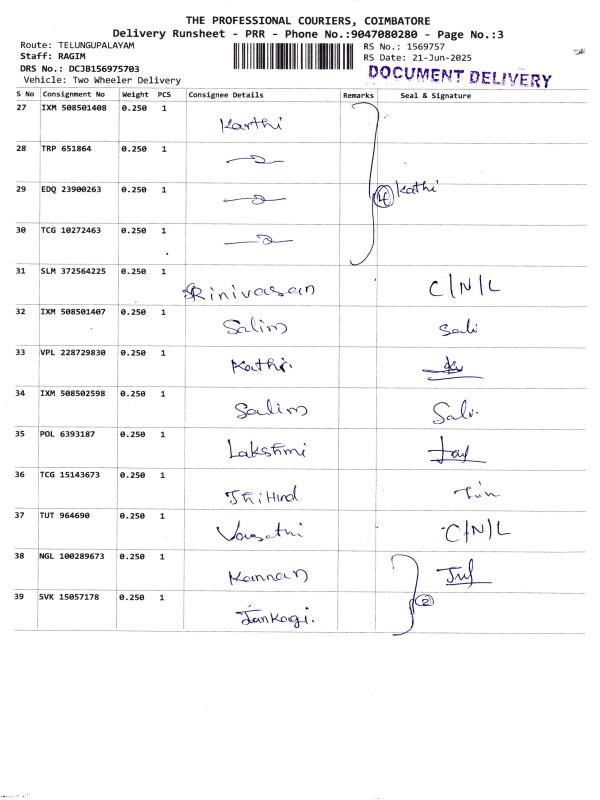 THE PROFESSIONAL COURIERS, COIMBATORE
Delivery Runsheet - PRR - Phone No.:9047080280 - Page No.:3
Route: TELUNGUPALAYAM
Staff: RAGIM
DRS No.: DCJB156975703
Vehicle: Two Wheeler Delivery
RS No.: 1569757
RS Date: 21-Jun-2025
DOCUMENT DELIVERY
S No Consignment No Weight PCS Consignee Details Remarks Seal & Signature
27 IXM 508501408 0.250 1 Karthi
28 TRP 651864 0.250 1
29 EDQ 23900263 0.250 1 4 Kathi
30 TCG 10272463 0.250 1
31 SLM 372564225 0.250 1 Srinivasan C/N/L
32 IXM 508501407 0.250 1 Salim Sali
33 VPL 228729830 0.250 1 Kathi
34 IXM 508502598 0.250 1 Salim
35 POL 6393187 0.250 1 Lakshmi
36 TCG 15143673 0.250 1
37 TUT 964690 0.250 1 C/N/L
38 NGL 100289673 0.250 1 Kannan
39 SVK 15057178 0.250 1 2